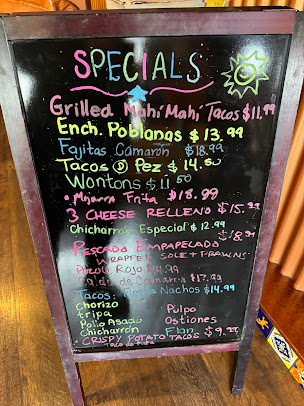 SPECIALS
Grilled Mahi Mahi Tacos $11.99
Ench. Poblanas $13.99
Fajitas Camarón $18.99
Tacos D Pez $14.50
Wontons $11.50
• Mojarra Frita $18.99
3 CHEESE RELLENO $15.99
Chicharrón Especial $12.99
PESCADO EMPAPELADO $18.99
WRAPPED SOLE + PRAWNS
Pozole Rojo $14.99
Caldo de Camaron $17.99
Tacos: Fiesta Nachos $14.99
Chorizo Pulpo
tripa Ostiones
Pollo Asado Flan
Chicharron $9.99
• CRISPY POTATO TACOS
Taco de Papa